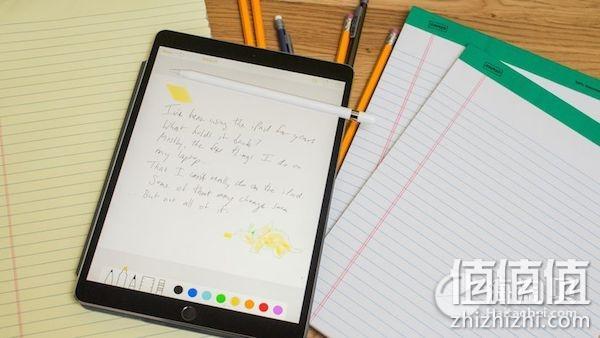 I've been using the iPad for years
What holds it back?
Mostly, the few things I do on
my laptop
That I can't really do on the iPad
Some of that may change soon
But not all of it.
值值值
zhizhizhi.com